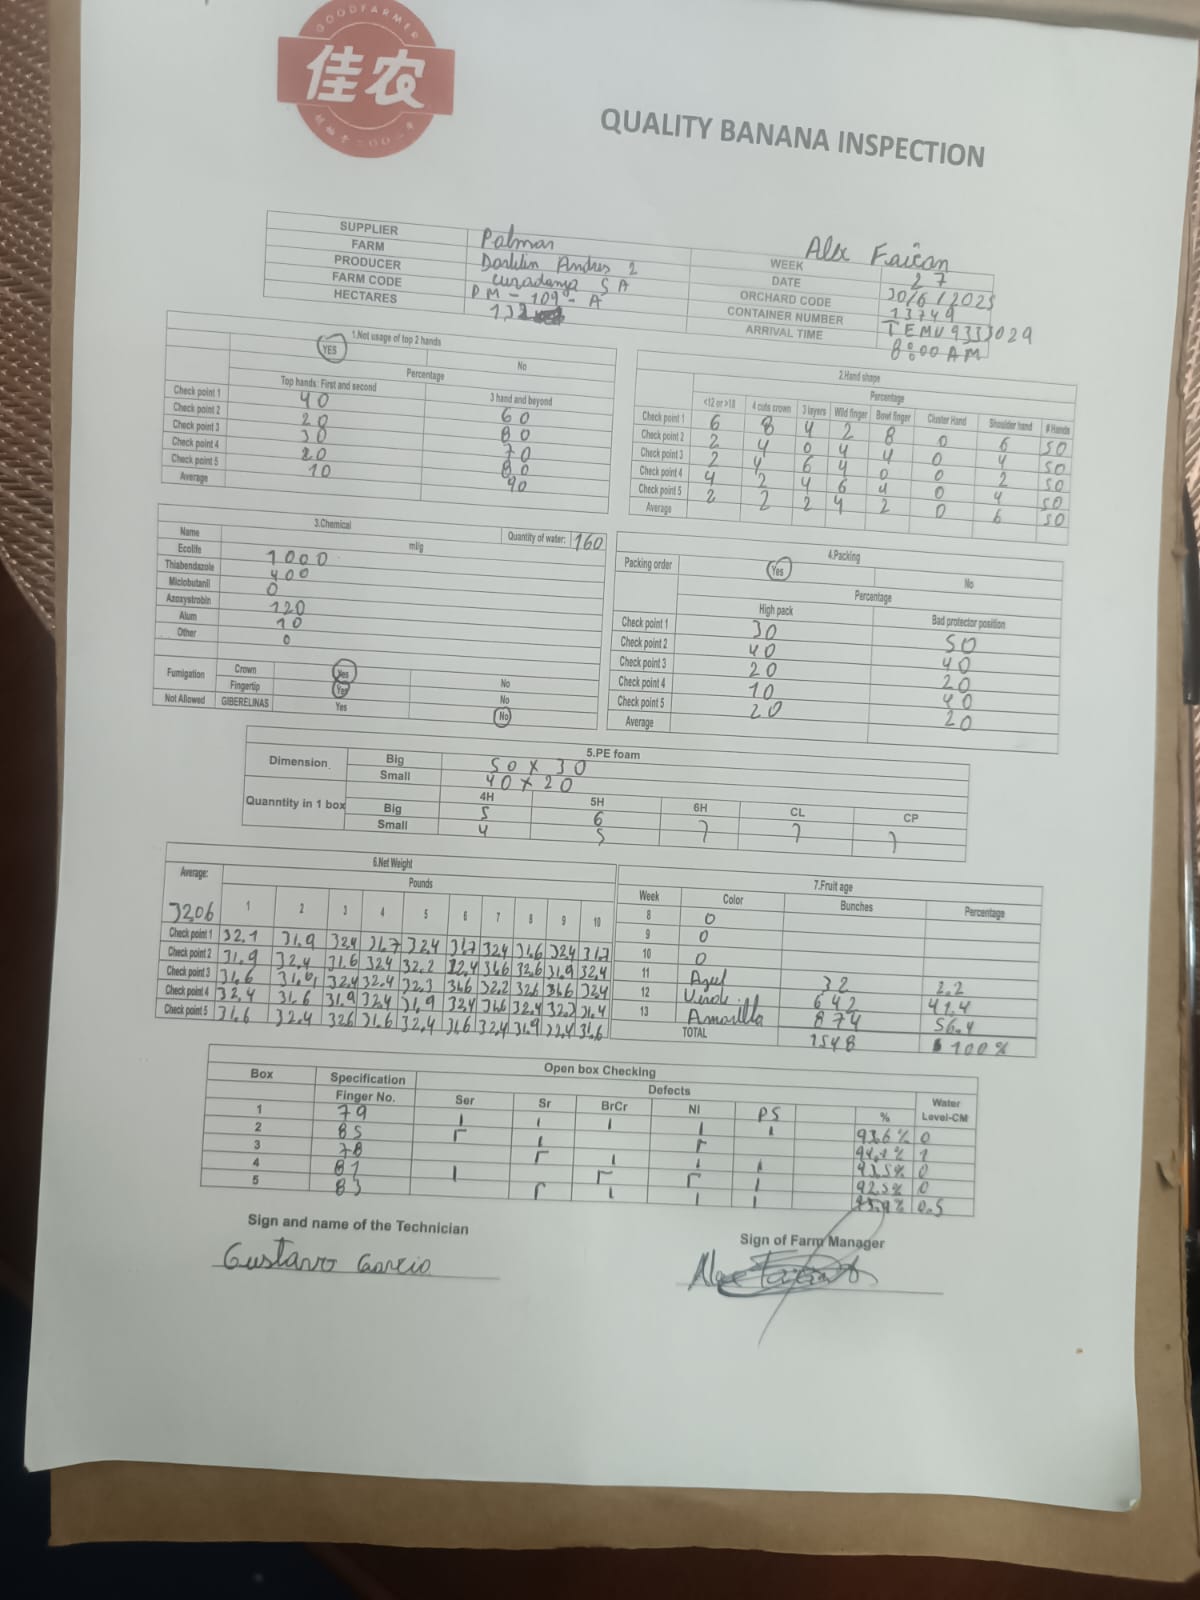 GOODFARMER
佳农
QUALITY BANANA INSPECTION
Alex Faican
SUPPLIER Palmar WEEK 27
FARM Andres 2 DATE 30/6/2025
PRODUCER SA ORCHARD CODE 13749
FARM CODE PM-109-A CONTAINER NUMBER TEMU9333029
HECTARES 132 ARRIVAL TIME 8:00 AM
1.Not usage of top 2 hands
YES No
Percentage
Top hands: First and second 3 hand and beyond
Check point 1 40 60
Check point 2 20 80
Check point 3 30 70
Check point 4 20 80
Check point 5 10 90
Average
2.Hand shape
Percentage
<12 or >18 4 cuts crown 3 layers Wild finger Bowl finger Cluster Hand Shoulder hand # Hands
Check point 1 6 8 4 2 8 0 6 50
Check point 2 2 4 0 4 4 0 4 50
Check point 3 2 4 6 4 0 0 2 50
Check point 4 4 2 4 6 4 0 4 50
Check point 5 2 2 2 4 2 0 6 50
Average
3.Chemical Quantity of water: 160
Name ml/g
Ecolife 1000
Thiabendazole 400
Miclobutanil 0
Azoxystrobin 120
Alum 10
Other 0
Fumigation Crown Yes No
Fingertip Yes No
Not Allowed GIBERELINAS Yes No
4.Packing
Packing order Yes No
Percentage
High pack Bad protector position
Check point 1 30 50
Check point 2 40 40
Check point 3 20 20
Check point 4 10 40
Check point 5 20 20
Average
5.PE foam
Dimension Big 50 x 30
Small 40 x 20
Quanntity in 1 box 4H 5H 6H CL CP
Big 5 6
Small 4 5 7 7 7
6.Net Weight
Average: Pounds
3206 1 2 3 4 5 6 7 8 9 10
Check point 1 32.1 31.9 32.4 31.7 32.4 31.7 32.4 31.6 32.4 31.7
Check point 2 31.9 32.4 31.6 32.4 32.2 32.4 31.6 32.6 31.9 32.4
Check point 3 31.6 31.6 32.4 32.4 32.3 31.6 32.2 32.6 31.6 32.4
Check point 4 32.4 31.6 31.9 32.4 31.9 32.4 31.6 32.4 32.2 31.4
Check point 5 31.6 32.4 32.6 31.6 32.4 31.6 32.4 31.9 32.4 31.6
7.Fruit age
Week Color Bunches Percentage
8 0
9 0
10 0
11 Azul 32 2.2
12 Verde 642 41.4
13 Amarilla 874 56.4
TOTAL 1548 100%
Open box Checking
Box Specification Defects Water
Finger No. Ser Sr BrCr NI PS % Level-CM
1 79 93.6% 0
2 85 94.1% 1
3 78 93.5% 0
4 81 92.5% 0
5 83 0.5
Sign and name of the Technician
Gustavo Garcia
Sign of Farm Manager